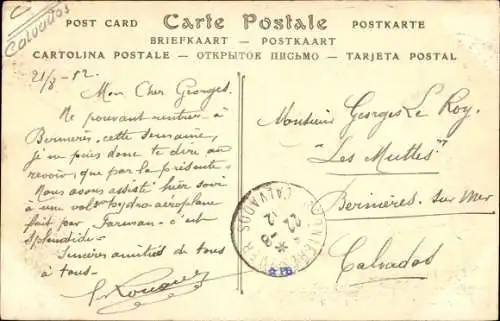 Calvados
POST CARD Carte Postale POSTKARTE
BRIEFKAART — POSTKAART
CARTOLINA POSTALE — ОТКРЫТОЕ ПИСЬМО — TARJETA POSTAL
21/8 - 12.
Mon Cher Georges.
Ne pouvant rentrer à
Bernières, cette semaine,
je ne puis donc te dire au
revoir, que par la présente.
Nous avons assisté hier soir
à une vol hydro-aéroplane
fait par Farman - c'est
splendide.
Sincères amitiés de tous
à tous.
Monsieur Georges Le Roy.
"Les Muttes"
Bernières sur Mer
Calvados
BERNIERES-S-MER
CALVADOS
22 -8 12